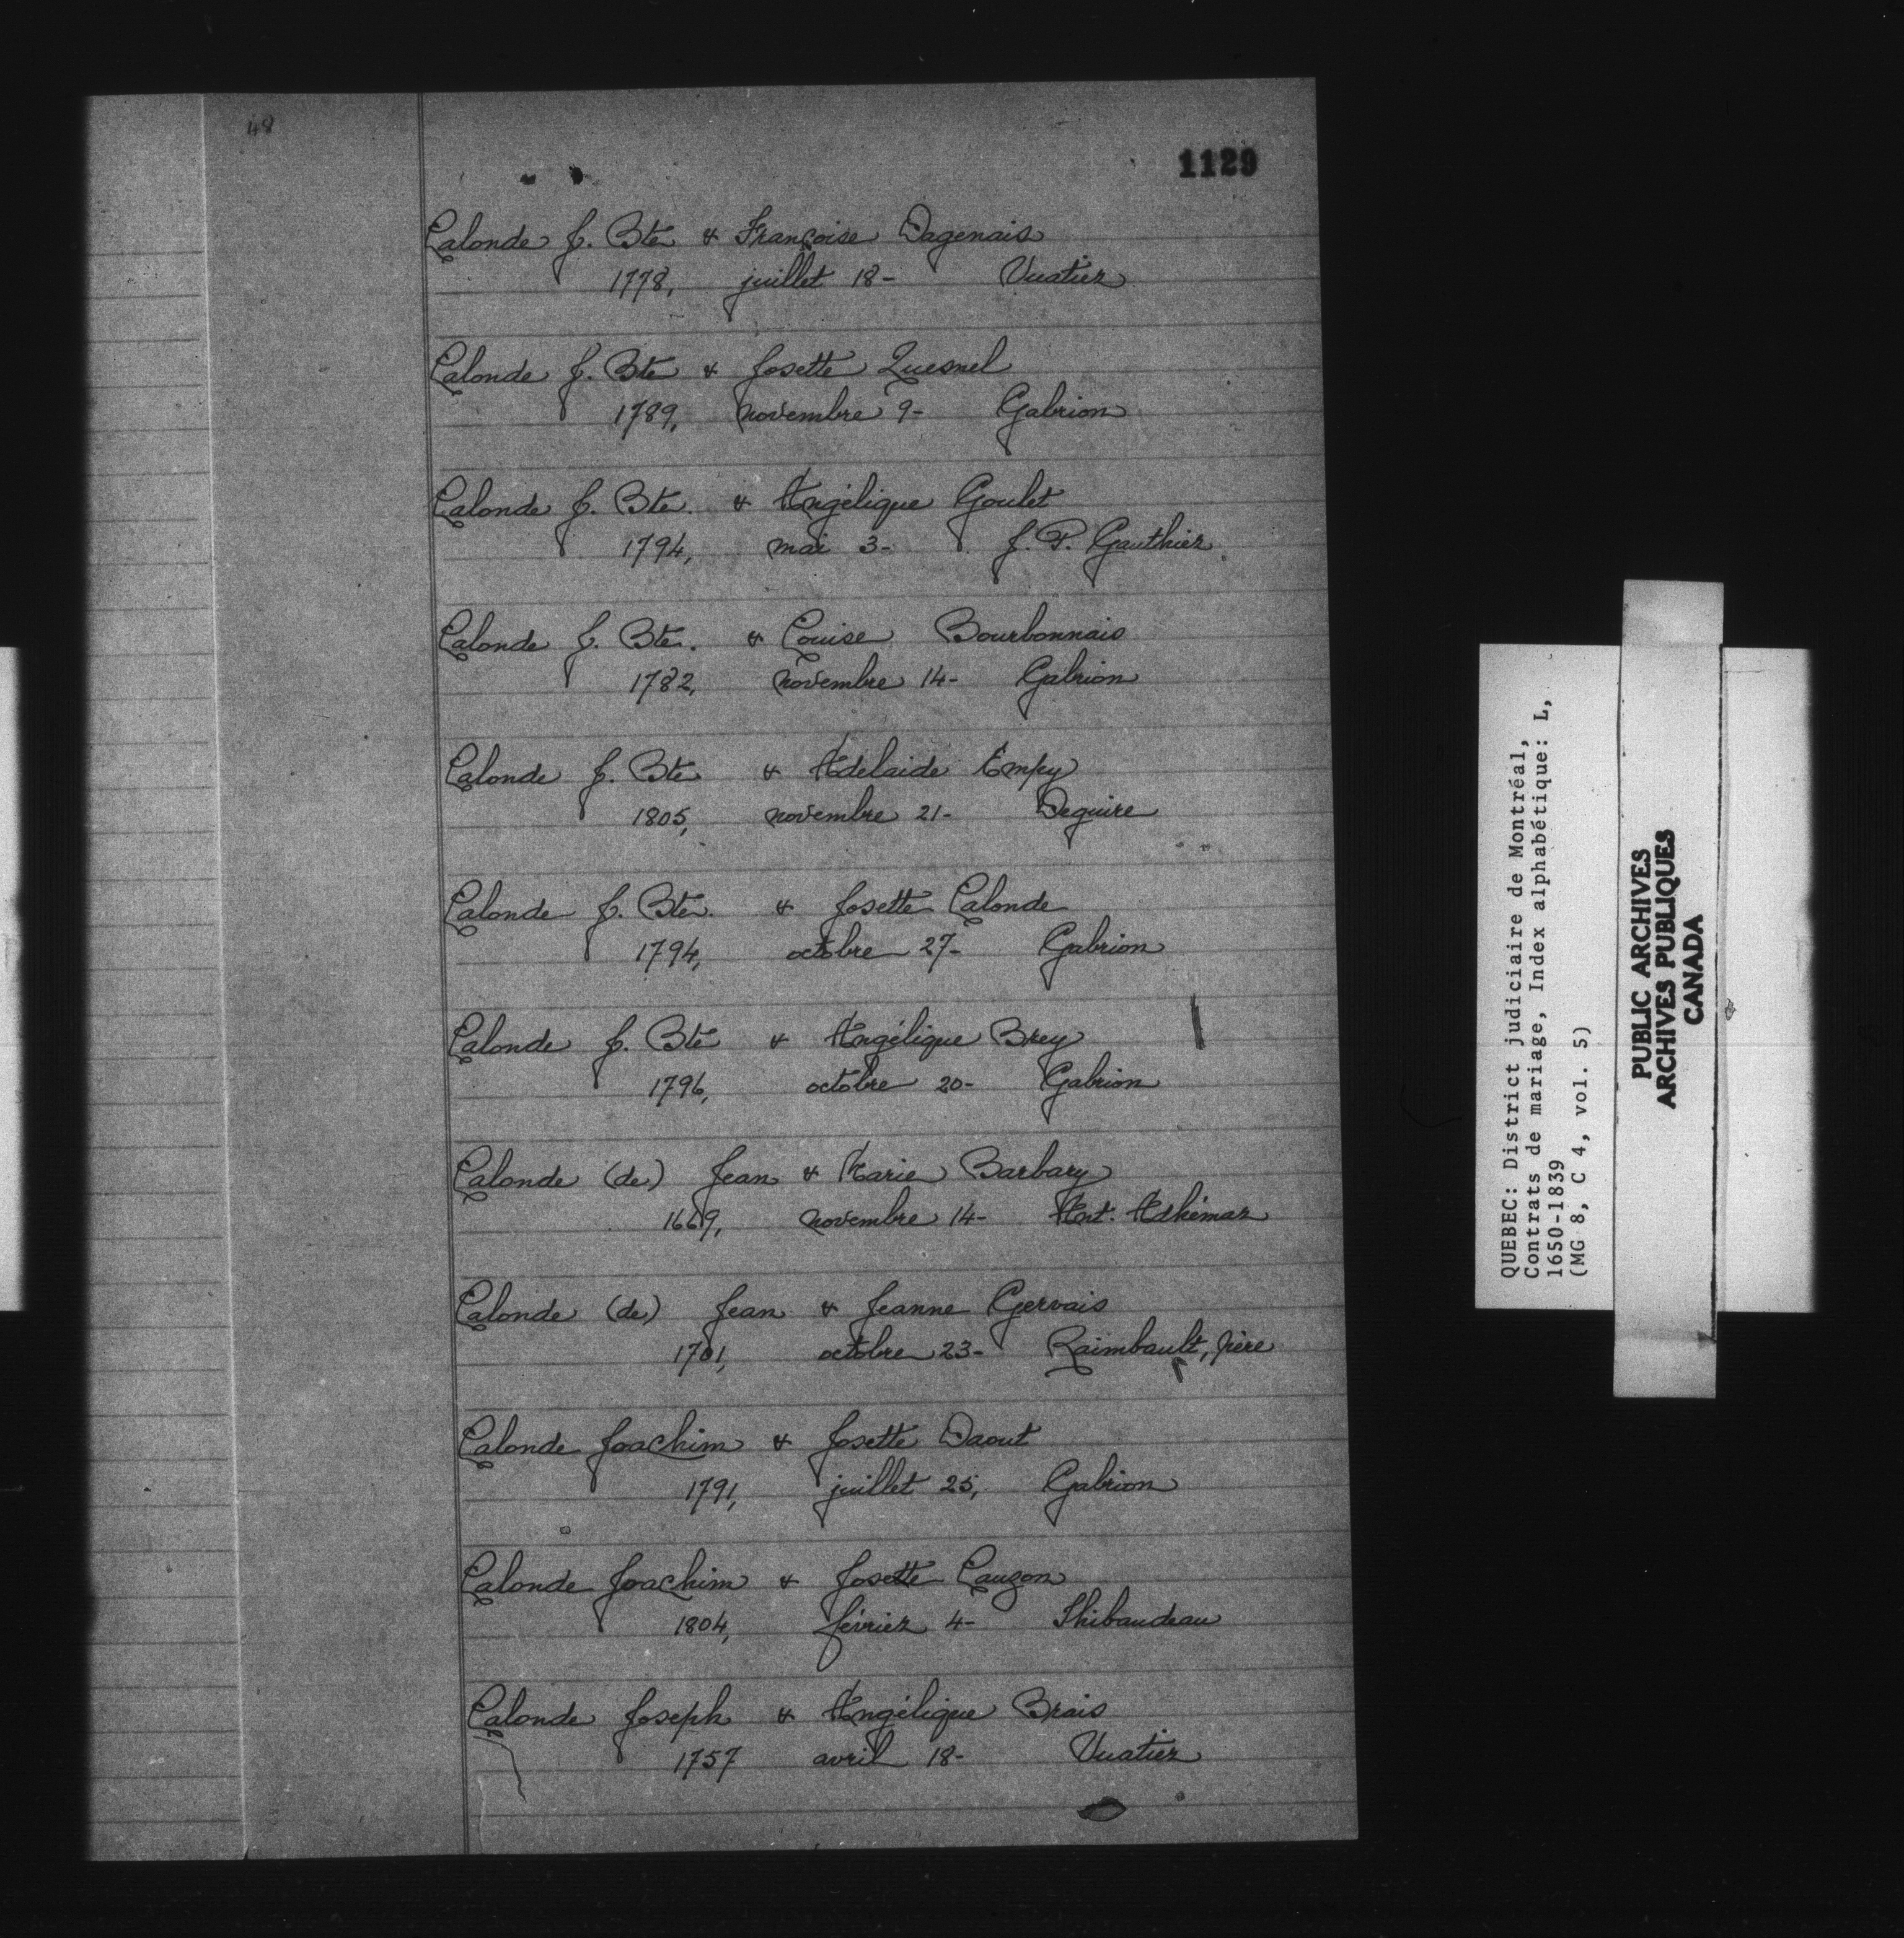 48
1129
Lalonde J. Bte & Françoise Dagenais
1778, juillet 18- Vuatier
Lalonde J. Bte & Josette Quesnel
1789, novembre 9- Gabrion
Lalonde J. Bte. & Angélique Goulet
1794, mai 3- J. P. Gauthier
Lalonde J. Bte. & Louise Bourbonnais
1782, novembre 14- Gabrion
Lalonde J. Bte & Adelaide Empy
1805, novembre 21- Deguire
Lalonde J. Bte. & Josette Lalonde
1794, octobre 27- Gabrion
Lalonde J. Bte & Angélique Brey
1796, octobre 20- Gabrion
Lalonde (de) Jean & Marie Barbary
1669, novembre 14- Ant. Adhémar
Lalonde (de) Jean & Jeanne Gervais
1701, octobre 23- Raimbault, père
Lalonde Joachim & Josette Daout
1791, juillet 25, Gabrion
Lalonde Joachim & Josette Lauzon
1804, février 4- Thibaudeau
Lalonde Joseph & Angélique Brais
1757 avril 18- Vuatier
QUEBEC: District judiciaire de Montréal,
Contrats de mariage, Index alphabétique: L,
1650-1839
(MG 8, C 4, vol. 5)
PUBLIC ARCHIVES
ARCHIVES PUBLIQUES
CANADA